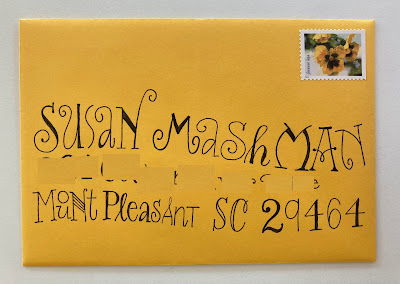 SUSAN MashMAN
MOUNt PleasANT SC 29464